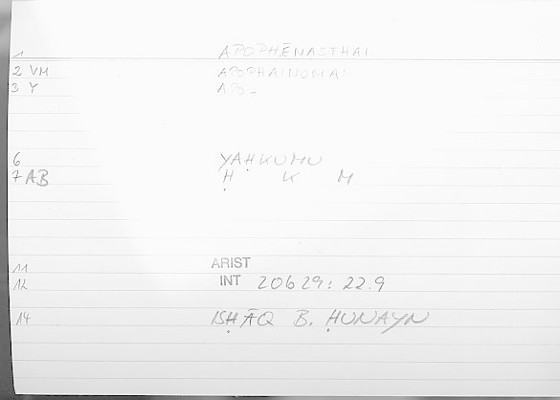 1 APOPHĒNASTHAI
2 VM APOPHAINOMAI
3 Y APO_
6 YAḤKUMU
7 AB Ḥ K M
11 ARIST
12 INT 20629: 22.9
14 ISḤĀQ B. ḤUNAYN